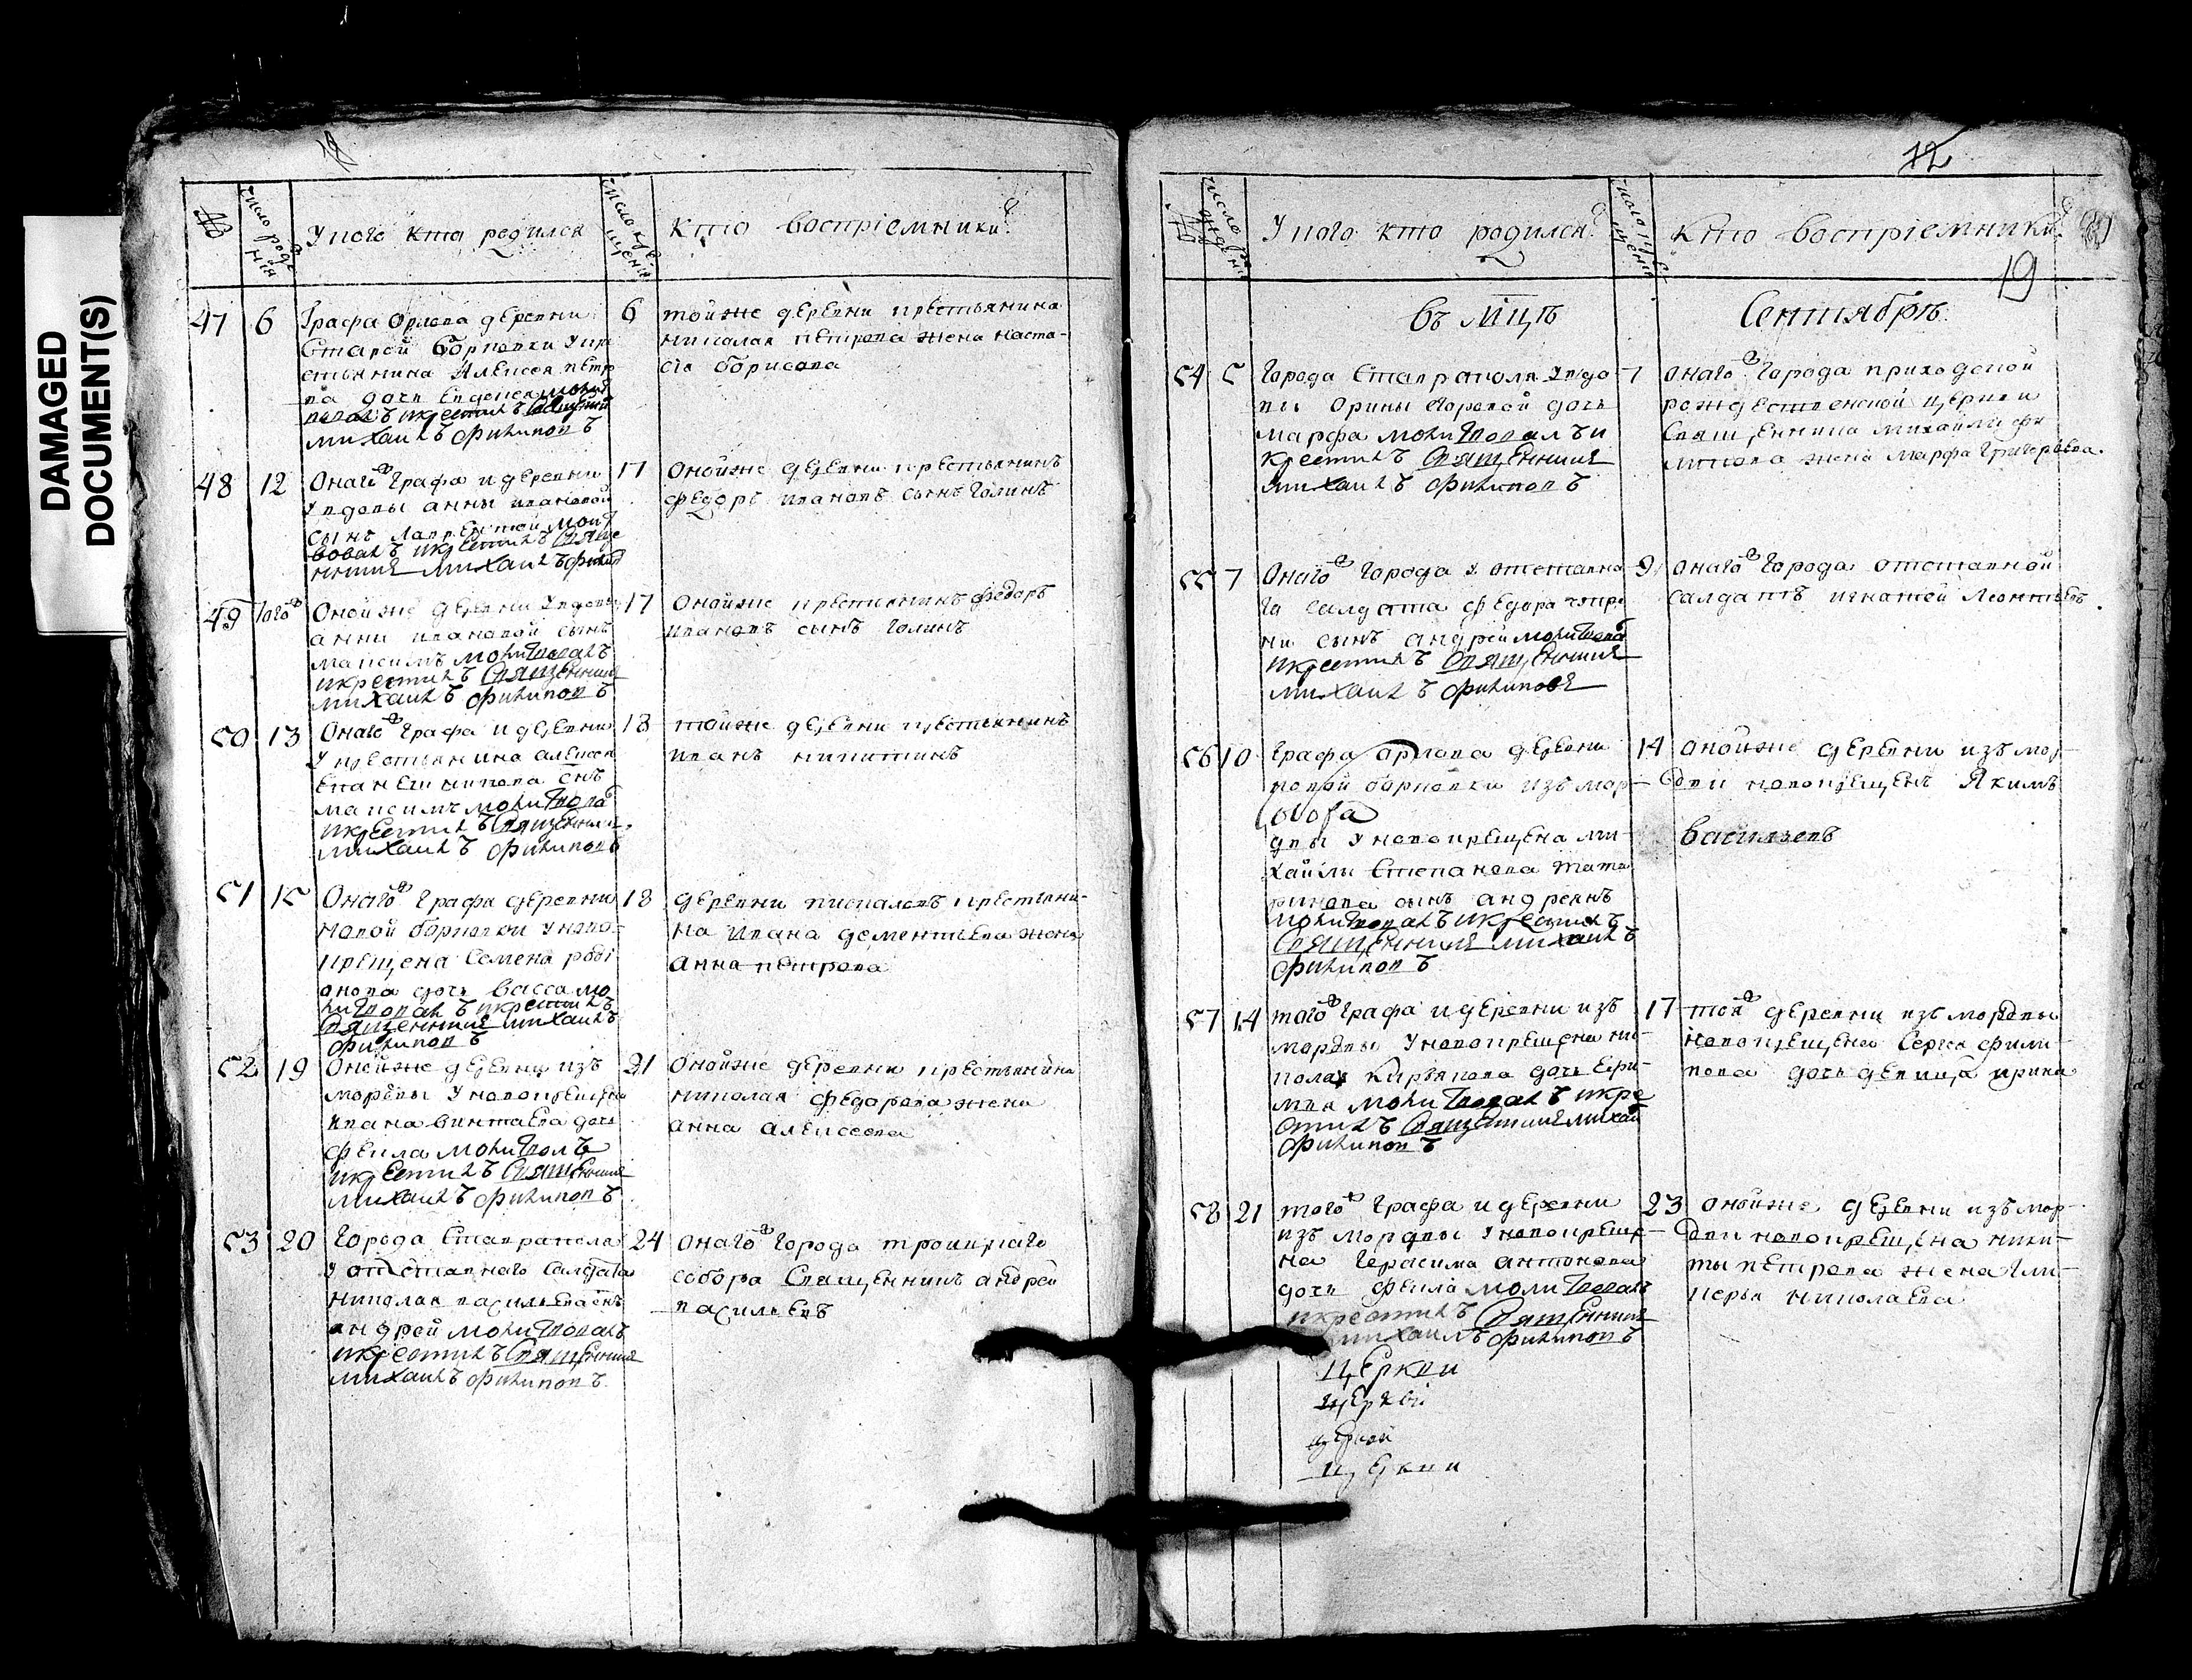 DAMAGED
DOCUMENT(S)
№
число рожде
нія
У кого кто родился
число кре
щенія
Кто воспріемники
47
6
Графа Орлова деревни
Старой Борковки у кре
стьянина Алексея Петро
ва дочь Евдокея
и крестилъ Священникъ
михаилъ филиповъ
6
тойже деревни крестьянина
николая петрова жена наста-
сія борисова
48
12
Онаго Графа и деревни
у вдовы анны ивановой
сынъ Лаврентей моли
вовалъ и крестилъ Свяще
нникъ михаилъ филипо
17
Онойже деревни крестьянинъ
федоръ ивановъ сынъ Голинъ
49
того
Онойже деревни у вдовы
анны ивановой сынъ
максимъ молитвовалъ
и крестилъ Священникъ
михаилъ филиповъ
17
Онойже крестьянинъ федоръ
ивановъ сынъ голинъ
50
13
Онаго Графа и деревни
у крестьянина алексея
снъ
максимъ молитвова
и крестилъ Священник
михаилъ филиповъ
18
тойже деревни крестьянинъ
иванъ никитинъ
51
15
Онаго Графа деревни
новой борковки у ново-
крещена Семена роді
онова дочь васса мо
литвовалъ и крестилъ
Священникъ михаилъ
филиповъ
18
деревни крестьяни-
на ивана дементьева жена
анна петрова
52
19
Онойже деревни изъ
мордвы у новокрещена
ивана дочь
фекла молитволъ
и крестилъ Священник
михаилъ филиповъ
21
Онойже деревни крестьянина
николая федорова жена
анна алексеева
53
20
Города Ставраполя
у отставнаго Салдата
николая васильева снъ
андрей молитвовалъ
и крестилъ Священник
михаилъ филиповъ
24
Онаго города троицкаго
собора Священникъ андрей
васильевъ
12
19
№
число рождени
У кого кто родился
число кре
щения
Кто воспріемники
въ мцѣ Сентябрѣ
54
5
Города Ставраполя у вдо
вы Орины Егоровой дочь
марфа молитвовалъ и
крестилъ Священникъ
михаилъ филиповъ
7
Онаго города приходской
рождественской церкви
Священника михайлы фи
липова жена марфа григорьева.
55
7
Онаго города у отставна
го салдата федора
сынъ андрей молитвова
и крестилъ Священникъ
михаилъ филиповъ
9
Онаго города отставной
салдатъ игнатей Леонтьевъ.
56
10
Графа орлова деревни
новой борковки изъ мор-
двы у новокрещена ми-
хайлы степанова тата
ринова сынъ андреянъ
молитвовалъ и крестилъ
Священникъ михаилъ
филиповъ
14
онойже деревни изъ мор-
двы новокрещенъ Якимъ
васильевъ
57
14
того Графа и деревни изъ
мордвы у новокрещена ни-
колая кирьянова дочь Ефи-
мия молитвовалъ и кре
стилъ Священник михаи
филиповъ
17
той деревни изъ мордвы
новокрещена Сергея фили-
пова дочь девица ирина
58
21
того Графа и деревни
изъ мордвы у новокреще-
на герасима антонова
дочь фекла молитвовалъ
и крестилъ Священникъ
михаилъ филиповъ
23
онойже деревни изъ мор-
двы новокрещена ники-
ты петрова жена гли-
керья николаева
церкви
церкви
церкви
церкви